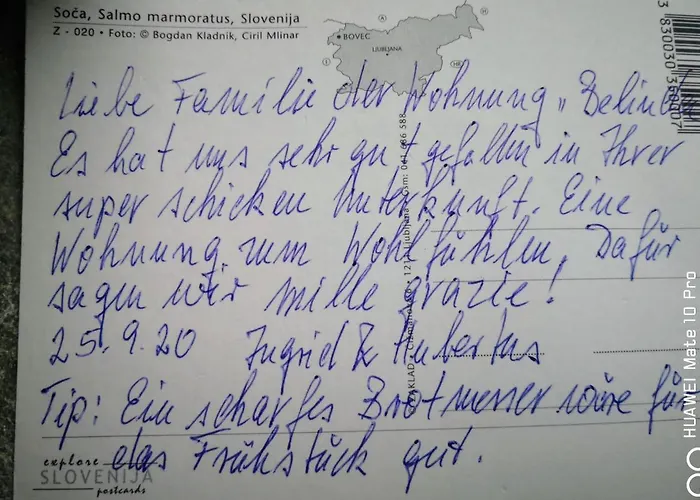 Soča, Salmo marmoratus, Slovenija
Z - 020 • Foto: © Bogdan Kladnik, Ciril Mlinar
BOVEC
LJUBLJANA
A
H
I
HR
Liebe Familie der Wohnung „Belina"
Es hat uns sehr gut gefallen in Ihrer
super schicken Unterkunft. Eine
Wohnung zum Wohlfühlen. Dafür
sagen wir mille grazie!
25.9.20 Ingrid & Hubertus
Tip: Ein scharfes Brotmesser wäre für
das Frühstück gut.
explore
SLOVENIJA
postcards
HUAWEI Mate 10 Pro